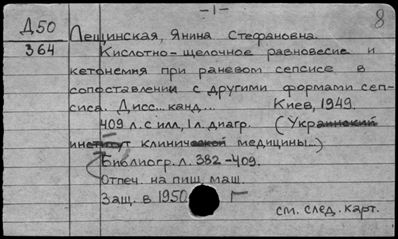 -1-
8
Д50
364
Лещинская, Янина Стефановна.
Кислотно-щелочное равновесие и
кетонемия при раневом сепсисе в
сопоставлении с другими формами сеп-
сиса. Дисс... канд... Киев, 1949.
409 л. с илл, 1 л. диагр. (Украинский
институт клинической медицины..)
Библиогр. л. 382-409.
Отпеч. на пиш. маш.
Защ. в 1950 г
см. след. карт.